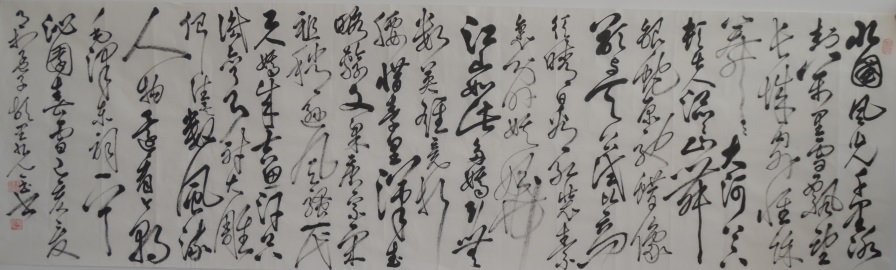 北國風光千里冰
封萬里雪飄望
長城内外惟餘
莽莽大河上下
頓失滔滔山舞
銀蛇原馳蠟像
欲與天公試比高
須晴日看紅裝素
裹分外妖嬈
江山如此多嬌引無
數英雄競折
腰惜秦皇漢武
略輸文采唐宗宋
祖稍遜風騷一代
天驕成吉思汗只
識彎弓射大雕
俱往矣數風流
人物還有今朝
毛澤東詞一首
沁園春雪己亥夏